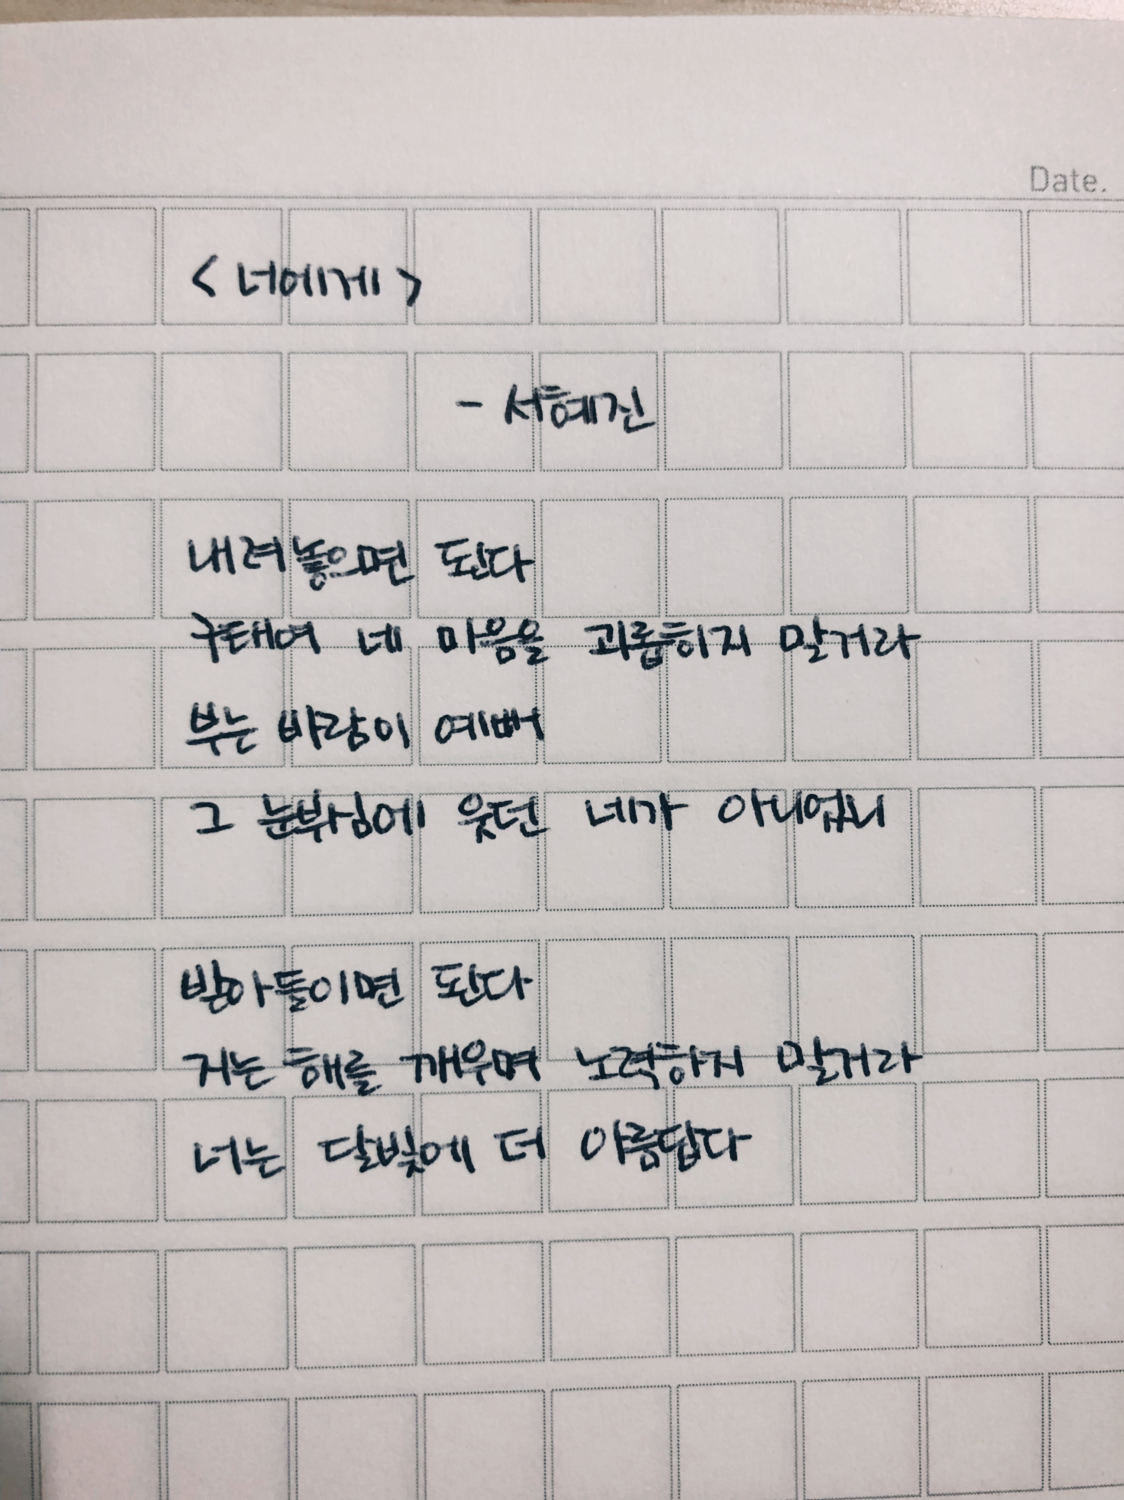 Date.
<너에게>
- 서혜진
내려놓으면 된다
구태여 네 마음을 괴롭히지 말거라
부는 바람이 예뻐
그 눈부심에 웃던 네가 아니었니
받아들이면 된다
지는 해를 깨우려 노력하지 말거라
너는 달빛에 더 아름답다